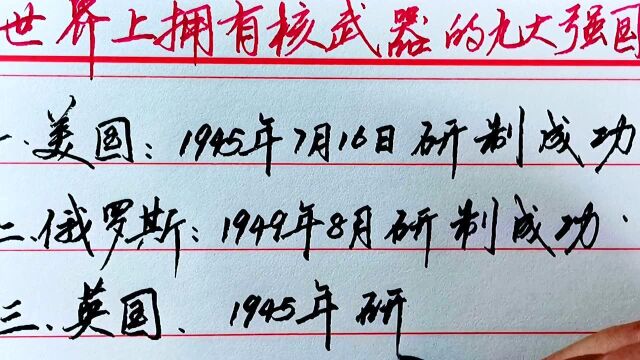 世界上拥有核武器的九大强国
一、美国：1945年7月16日研制成功
二、俄罗斯：1949年8月研制成功.
三、英国、1945年研